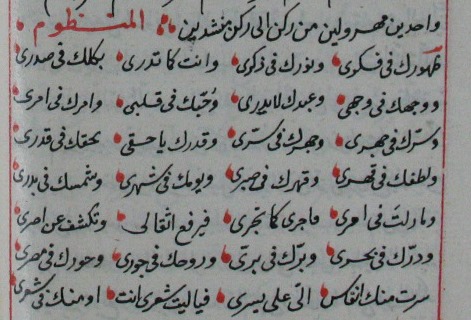 واحدين مهرولين من ركن الى ركن منشدين المنظوم
ظهورك في فكرى ونورك في ذكرى وانت كا تدرى بكلك في صدرى
ووجهك في وجهى وعبدك لا يدرى وحبك في قلبى وامرك في امرى
وسرك في جهرى وجهرك في سرى وقدرك يا حقى بحقك في قدرى
ولطفك في قهرى وقهرك في صبرى ويومك في شهرى وشمسك في بدرى
وما دلت في امرى ماجرى كا تجرى فيرفع اثقالى وتكشف عن اصرى
ودرك في بحرى وبرك في برى وروحك في حورى وحورك في
سرت منك انفاس الى على يسرى فيا ليت شعرى انت او منك في شعرى